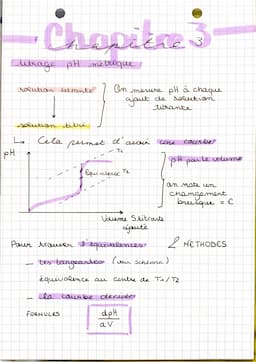 Chapitre 3
titrage pH métrique
solution titrante
On mesure pH à chaque
ajout de solution
titrante
solution titré
↳ Cela permet d'avoir une courbe
pH
T₂
Equivalence T₁
pH par le volume
on note un
changement
brusque = E
Volume S.titrante
ajouté
Pour trouver l'équivalence 2 METHODES
- les tangeantes (voir schéma)
équivalence au centre de T₁/T₂
- la courbe dérivée
FORMULES dpH
dV